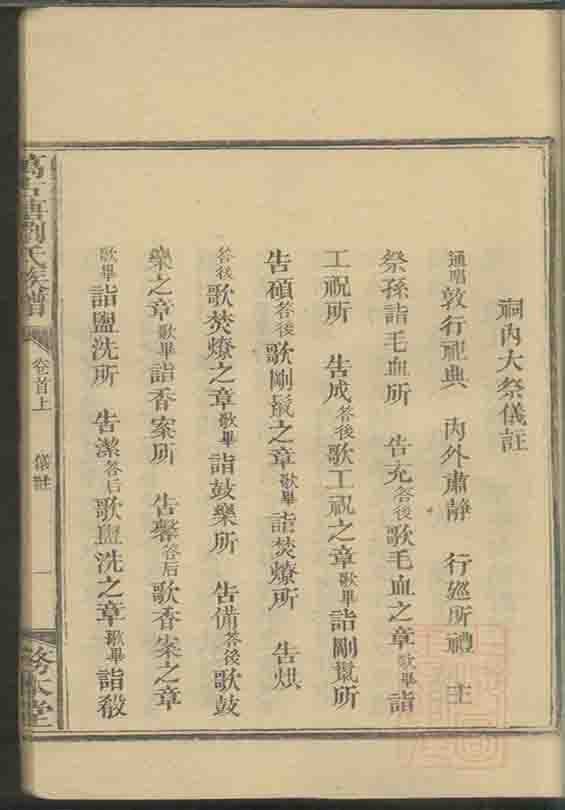 祠內大祭儀註
通唱敦行祀典　內外肅靜　行廵所禮　主
祭孫詣毛血所　告充答後歌毛血之章歌畢詣
工祝所　告成答後歌工祝之章歌畢詣剛鬛所
告碩答後歌剛鬛之章歌畢詣焚燎所　告烘
答後歌焚燎之章歌畢詣鼓樂所　告備答後歌鼓
樂之章歌畢詣香案所　告馨答后歌香案之章
歌畢詣盥洗所　告潔答后歌盥洗之章歌畢詣殺
萬石塘劉氏族譜
卷首上　儀註　一
務本堂